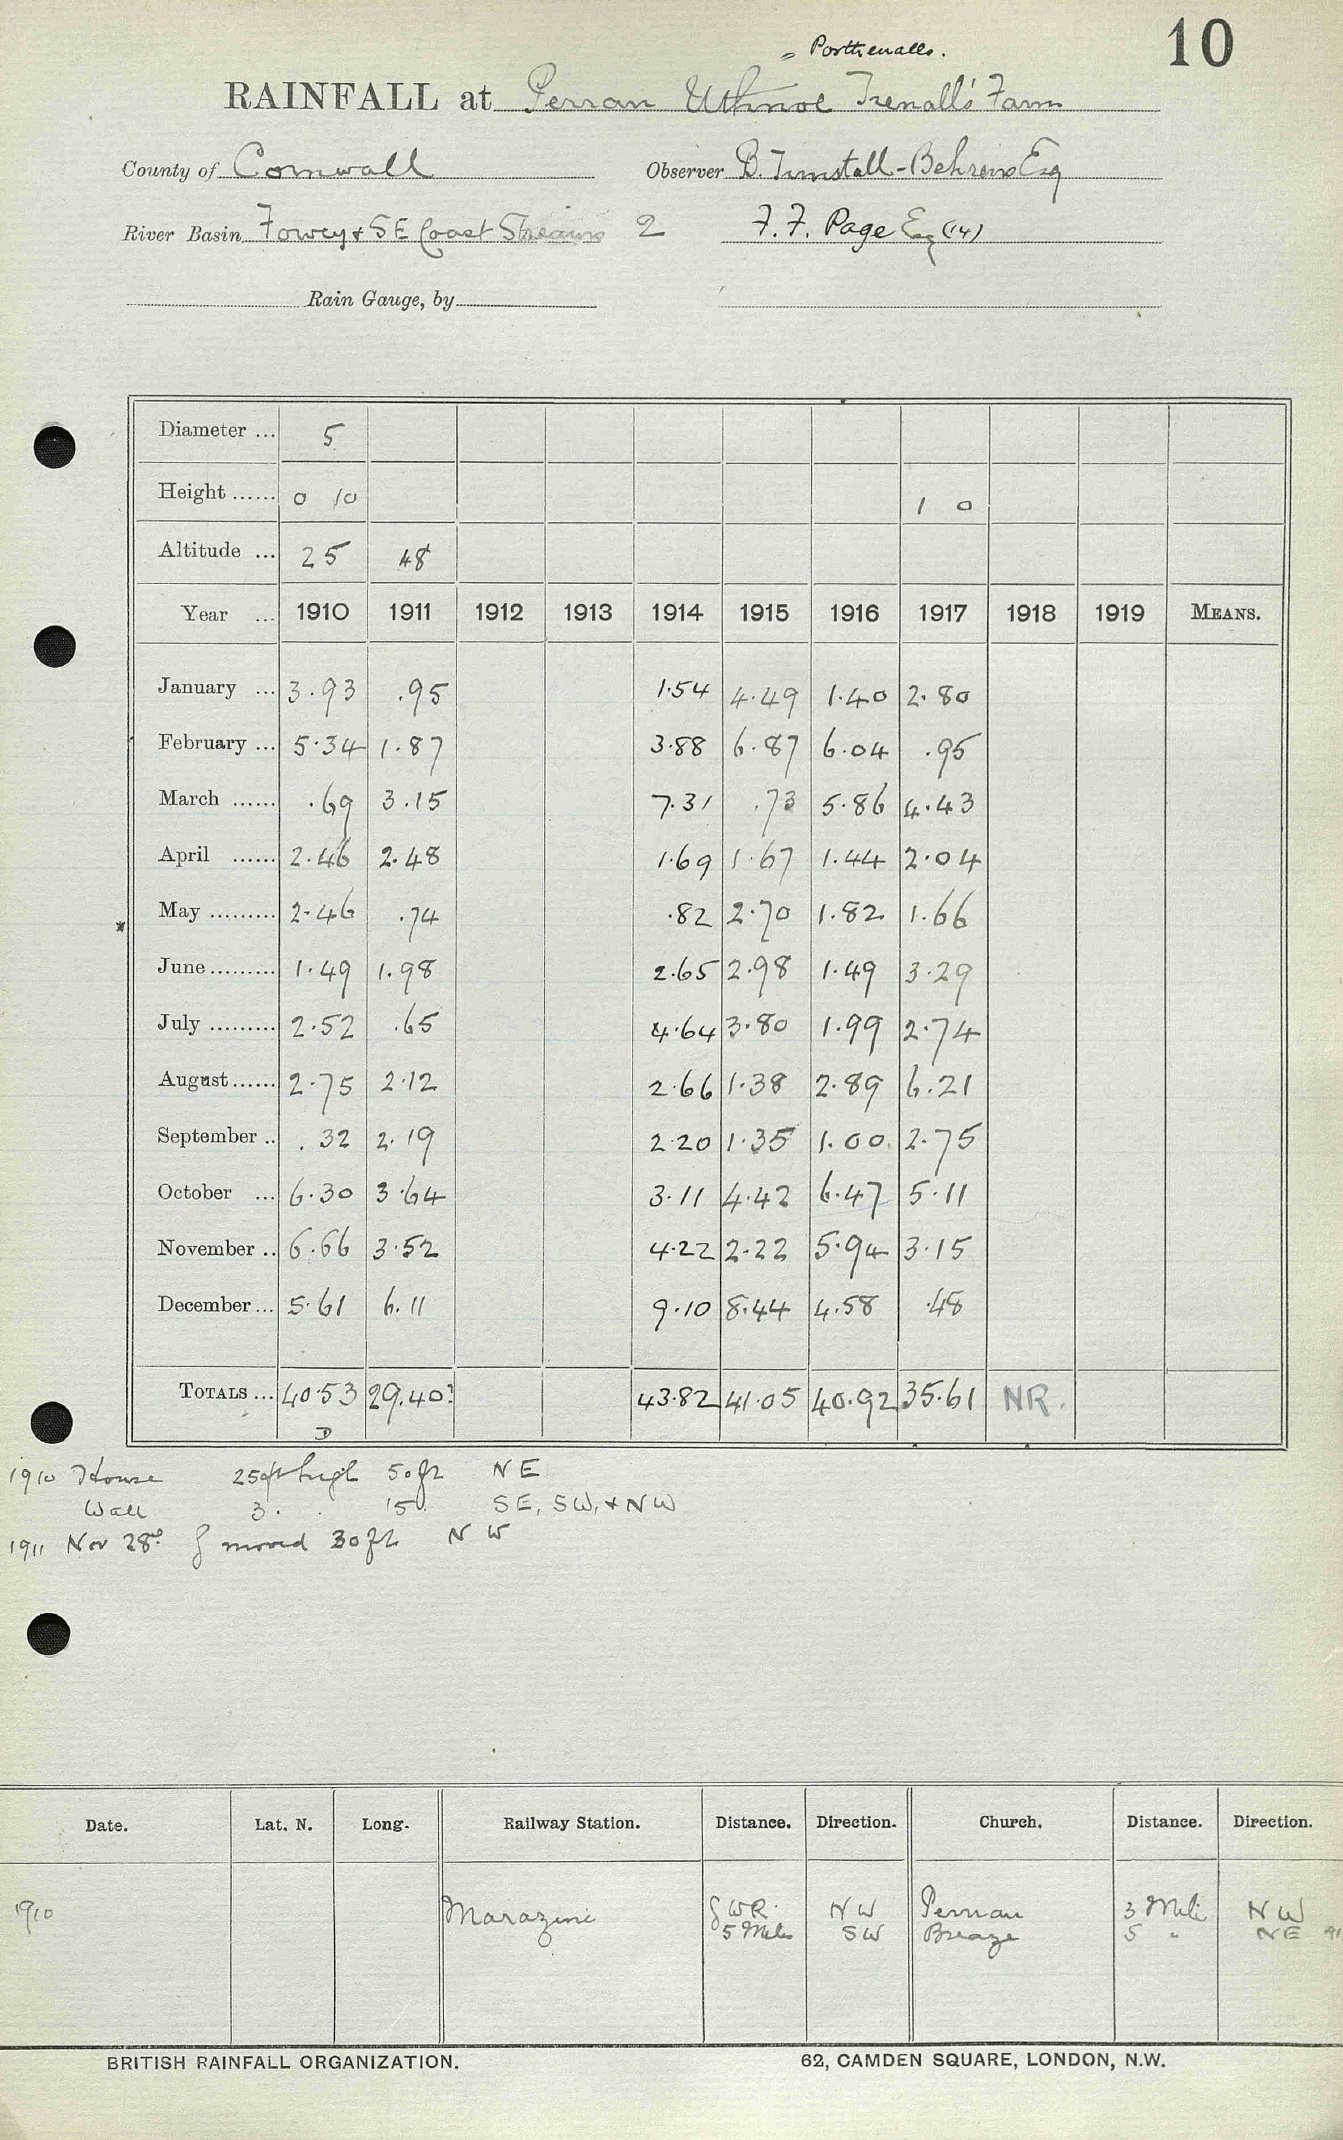 10
" Porthenalls.
RAINFALL at Perran Uthnoe Trenall's Farm
County of Cornwall Observer B. Tunstall-Behrens Esq
River Basin Fowey & SE Coast Streams 2 F. F. Page Esq (14)
Rain Gauge, by
Diameter ... 5
Height ...... 0 10 1 0
Altitude ... 25 48
Year ... 1910 1911 1912 1913 1914 1915 1916 1917 1918 1919 MEANS.
January ... 3.93 .95 1.54 4.49 1.40 2.80
February ... 5.34 1.87 3.88 6.87 6.04 .95
March ...... .69 3.15 7.31 .73 5.86 4.43
April ...... 2.46 2.48 1.69 1.67 1.44 2.04
May ......... 2.46 .74 .82 2.70 1.82 1.66
June ......... 1.49 1.98 2.65 2.98 1.49 3.29
July ......... 2.52 .65 4.64 3.80 1.99 2.74
August ...... 2.75 2.12 2.66 1.38 2.89 6.21
September .. .32 2.19 2.20 1.35 1.00 2.75
October ... 6.30 3.64 3.11 4.42 6.47 5.11
November .. 6.66 3.52 4.22 2.22 5.94 3.15
December ... 5.61 6.11 9.10 8.44 4.58 .48
TOTALS ... 40.53 29.40? 43.82 41.05 40.92 35.61 NR.
D
1910 House 25ft high 50ft NE
Wall 3. 15 SE, SW, & NW
1911 Nov 28th g moved 30ft NW
Date. Lat. N. Long. Railway Station. Distance. Direction. Church. Distance. Direction.
1910 Marazine GWR. NW Perran 3 Mile NW
5 Miles SW Breage 5 " NE
BRITISH RAINFALL ORGANIZATION. 62, CAMDEN SQUARE, LONDON, N.W.